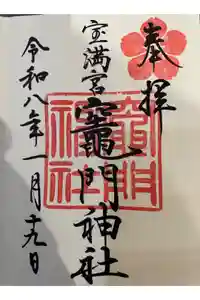 奉拝
宝満宮竈門神社
令和八年一月十九日
竈門
神社